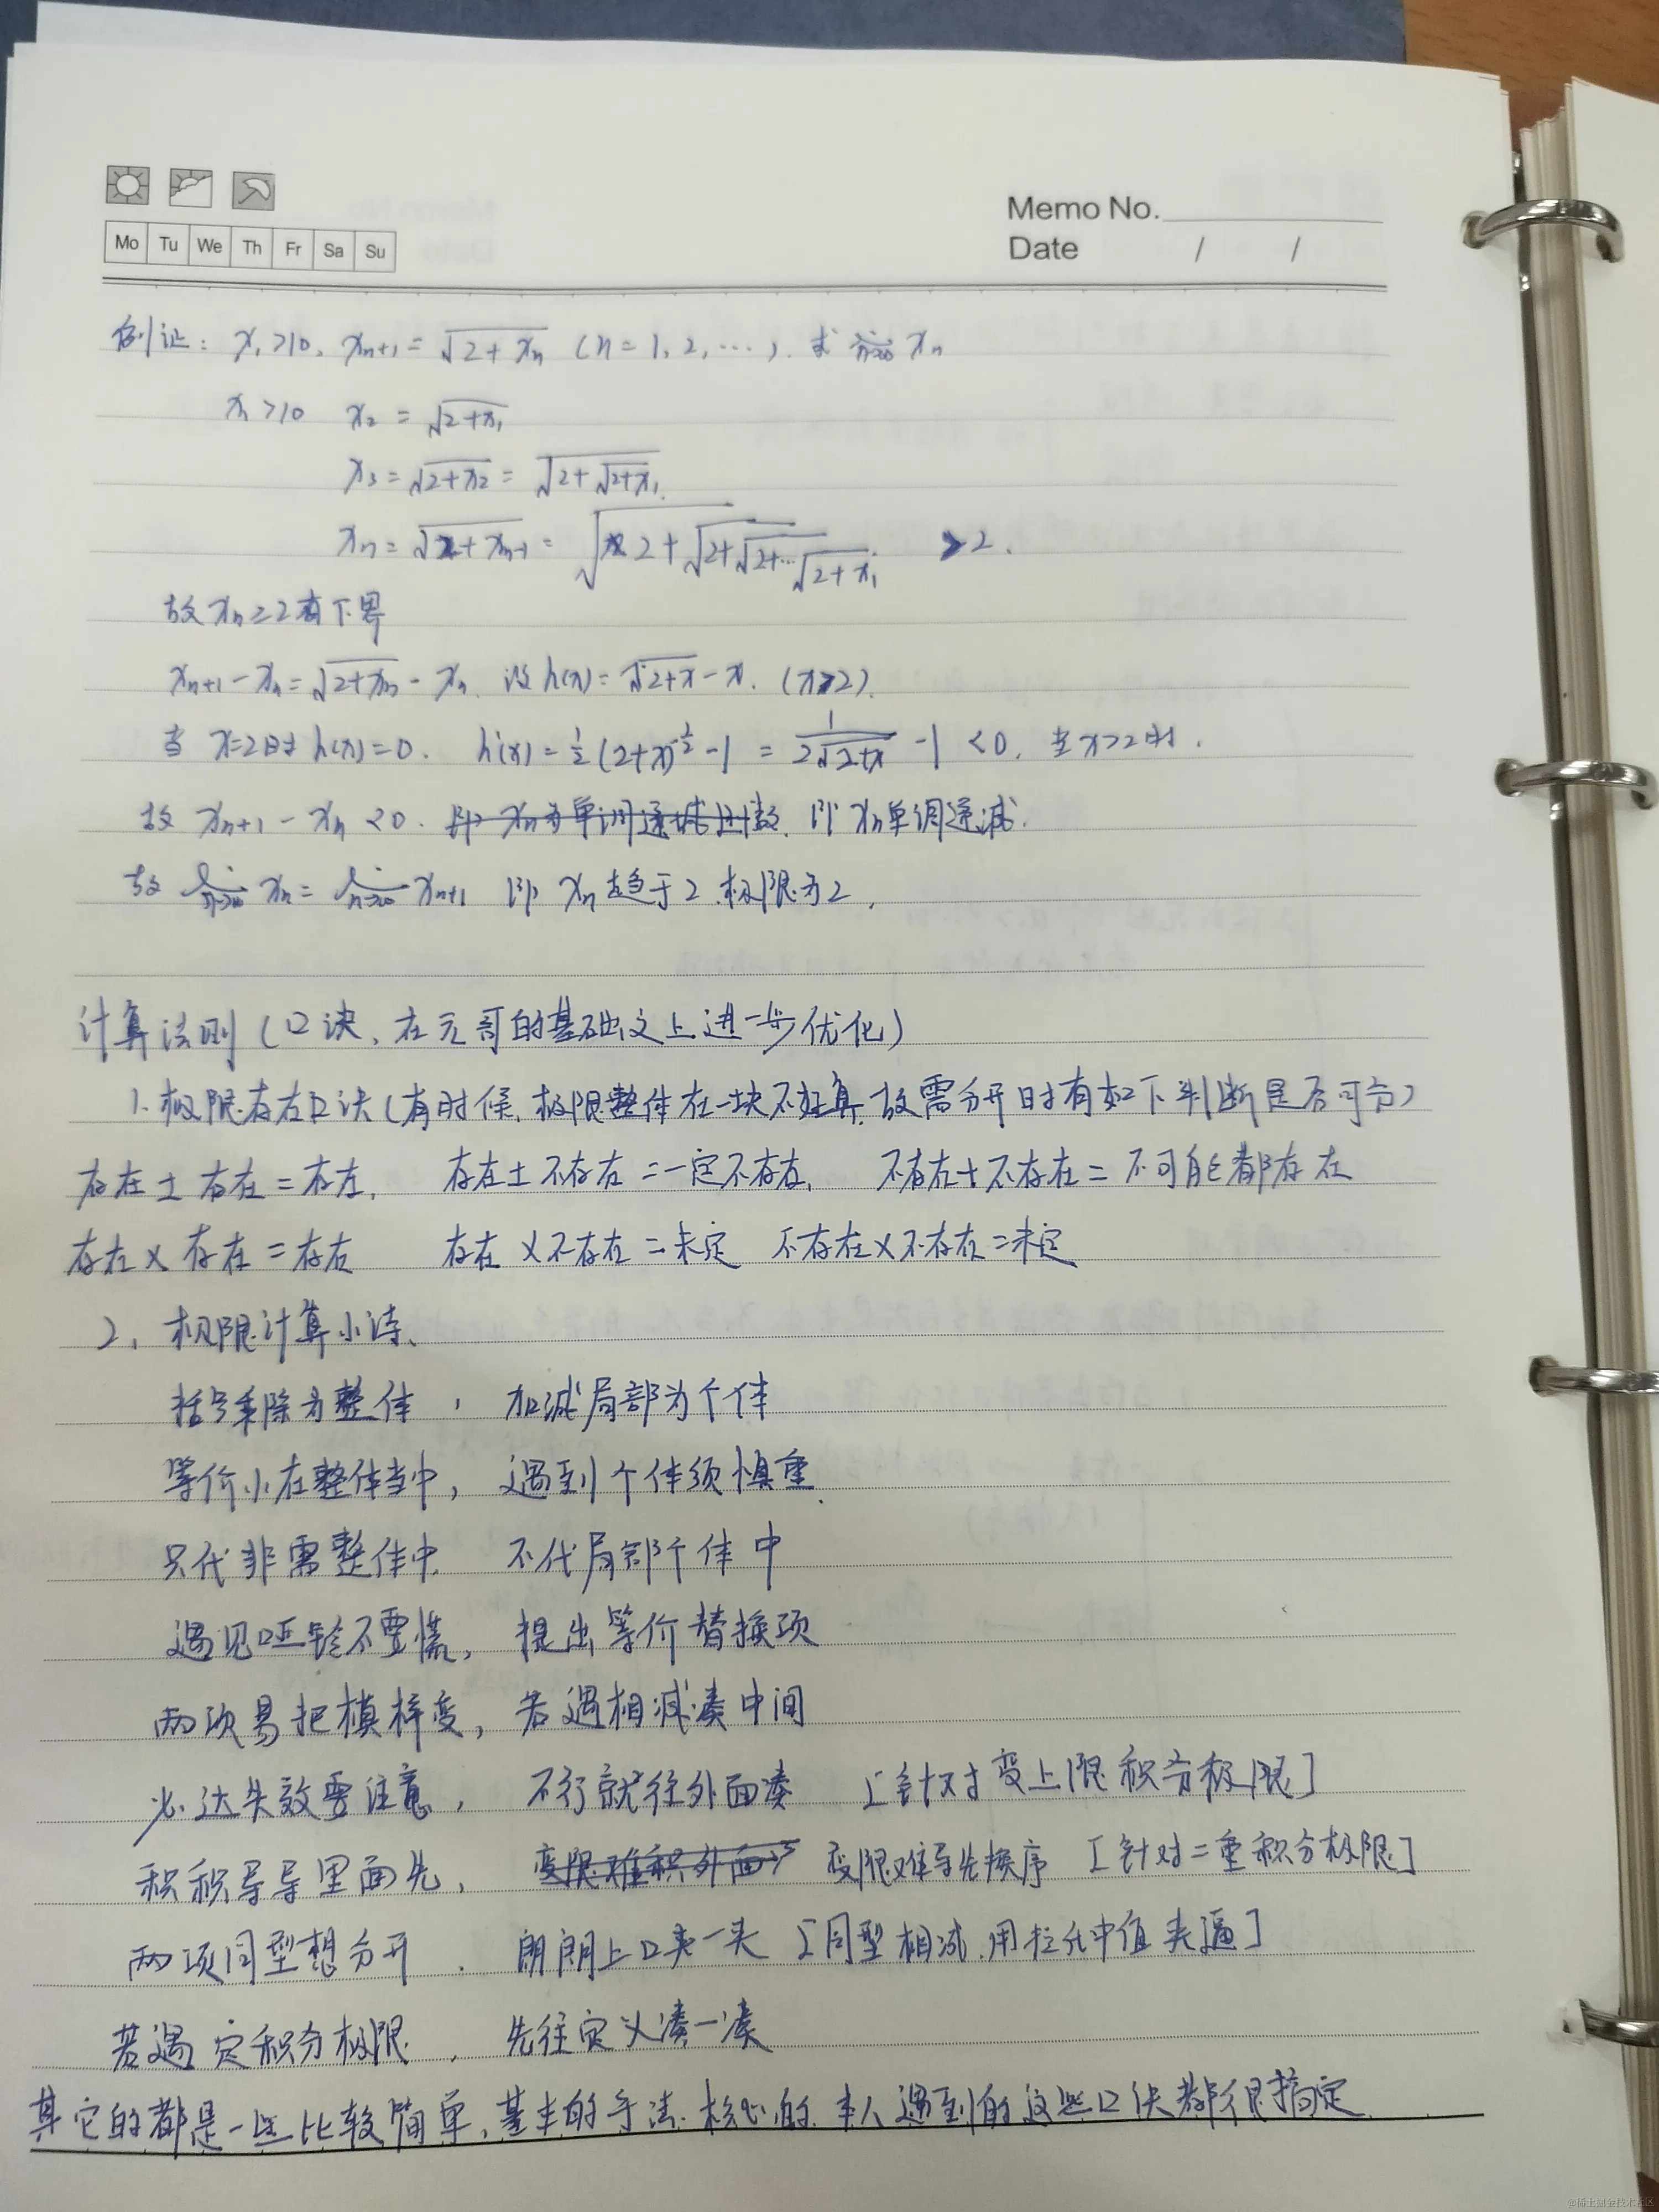 Mo Tu We Th Fr Sa Su
Memo No.
Date / /
例证: x₁>10, xₙ₊₁=√(2+xₙ) (n=1,2,…). 求 lim n→∞ xₙ
x₁>10 x₂=√(2+x₁)
x₃=√(2+x₂)=√(2+√(2+x₁))
xₙ=√(2+xₙ₋₁)=√(2+√(2+√(2+…√(2+x₁)))) >2.
故xₙ≥2有下界
xₙ₊₁-xₙ=√(2+xₙ)-xₙ. 设h(x)=√(2+x)-x. (x≥2).
当 x=2时h(x)=0. h'(x)=½(2+x)^(-½)-1=1/(2√(2+x))-1<0, 当x>2时.
故 xₙ₊₁-xₙ<0. 即 xₙ单调递减.
故 lim n→∞ xₙ=lim n→∞ xₙ₊₁ 即 xₙ趋于2.极限为2.
计算法则(口诀,在元哥的基础义上进一步优化)
1.极限存在口诀(有时候,极限整体在一块不好算,故需分开时有如下判断是否可分)
存在±存在=存在, 存在±不存在=一定不存在, 不存在±不存在=不可能都存在
存在×存在=存在 存在×不存在=未定 不存在×不存在=未定
2, 极限计算小诗、
括号乘除为整体, 加减局部为个体
等价小在整体当中, 遇到个体须慎重
只代非需整体中, 不代局部个体中
遇见 不要慌, 提出等价替换项
两项易把模样变, 若遇相减凑中间
必达失效要注意, 不行就往外面凑 [针对变上限积分极限]
积积导导里面先, 变限难导先换序 [针对二重积分极限]
两项同型想分开, 朗朗上口夹一夹 [同型相减,用拉氏中值夹逼]
若遇定积分极限, 先往定义凑一凑
其它的都是一些比较简单,基本的手法.核心的.本人遇到的这些口诀都很搞定
@稀土掘金技术社区